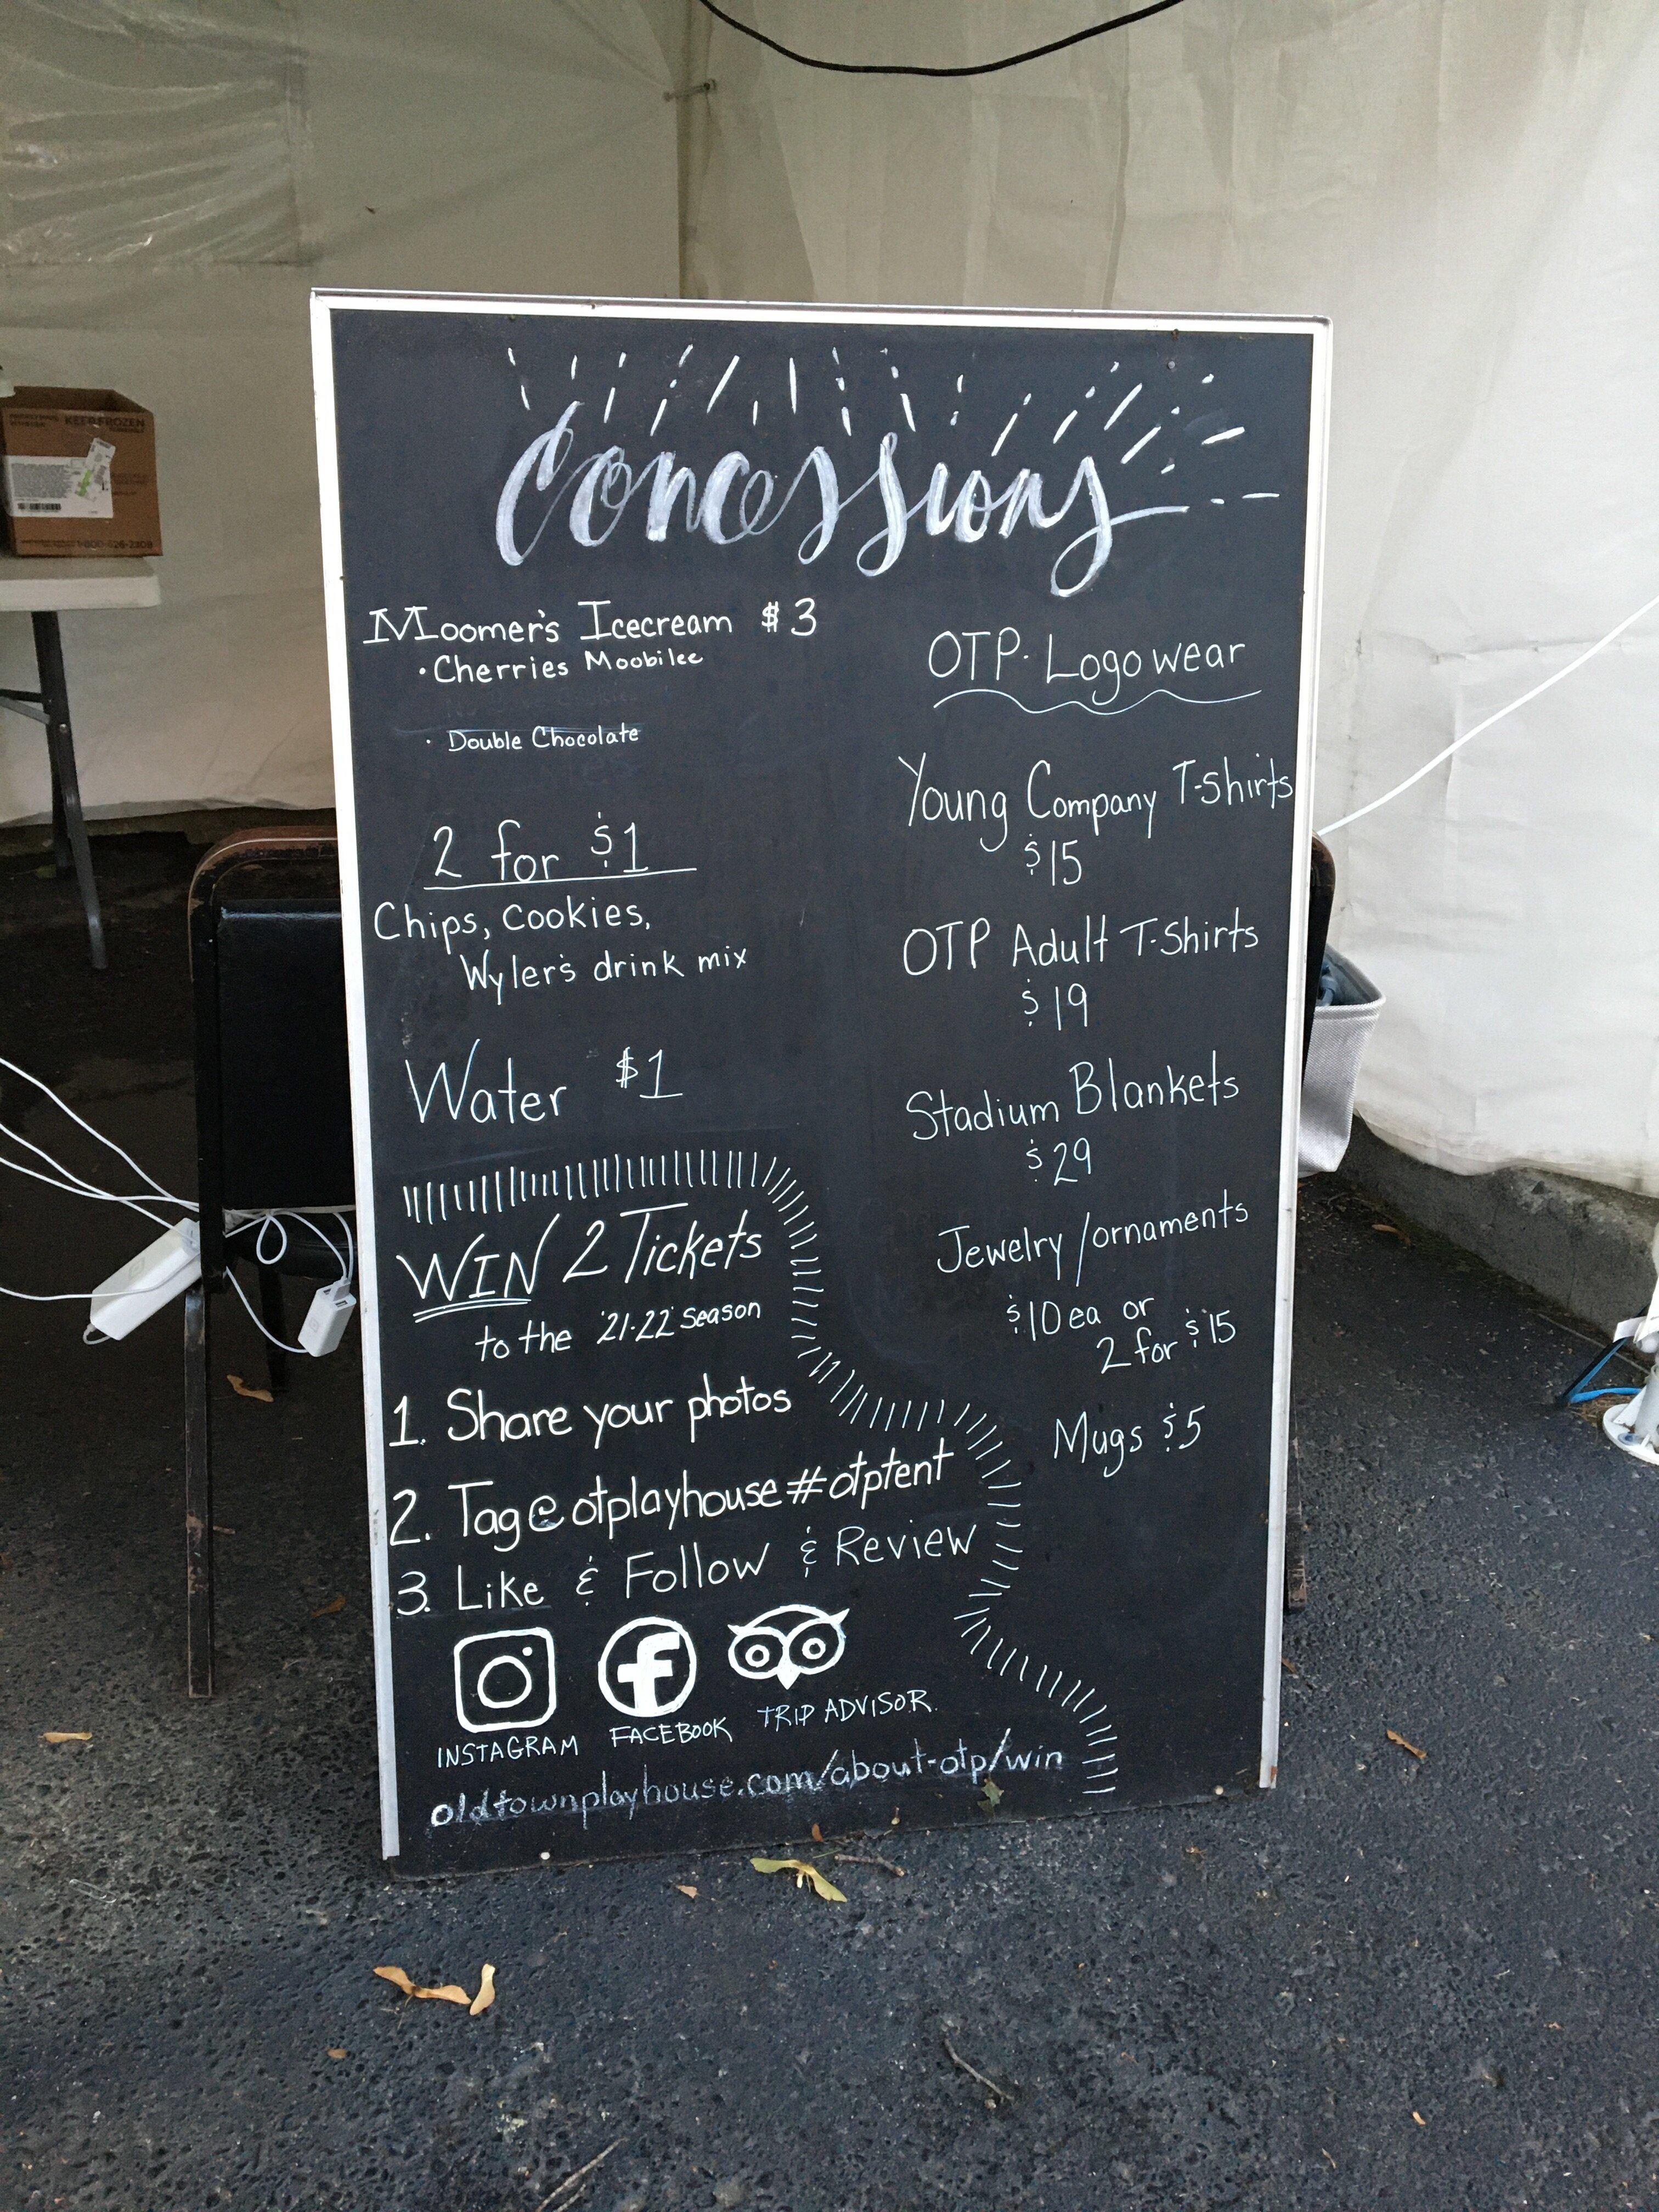 Concessions
Moomer's Icecream $3
• Cherries Moobilee
• Double Chocolate
2 for $1
Chips, Cookies,
Wyler's drink mix
Water $1
WIN 2 Tickets
to the '21-22' Season
1. Share your photos
2. Tag @otplayhouse #otptent
3. Like & Follow & Review
INSTAGRAM FACEBOOK TRIP ADVISOR
oldtownplayhouse.com/about-otp/win
OTP. Logowear
Young Company T-Shirts
$15
OTP Adult T-Shirts
$19
Stadium Blankets
$29
Jewelry/ornaments
$10 ea or
2 for $15
Mugs $5
KEEP FROZEN